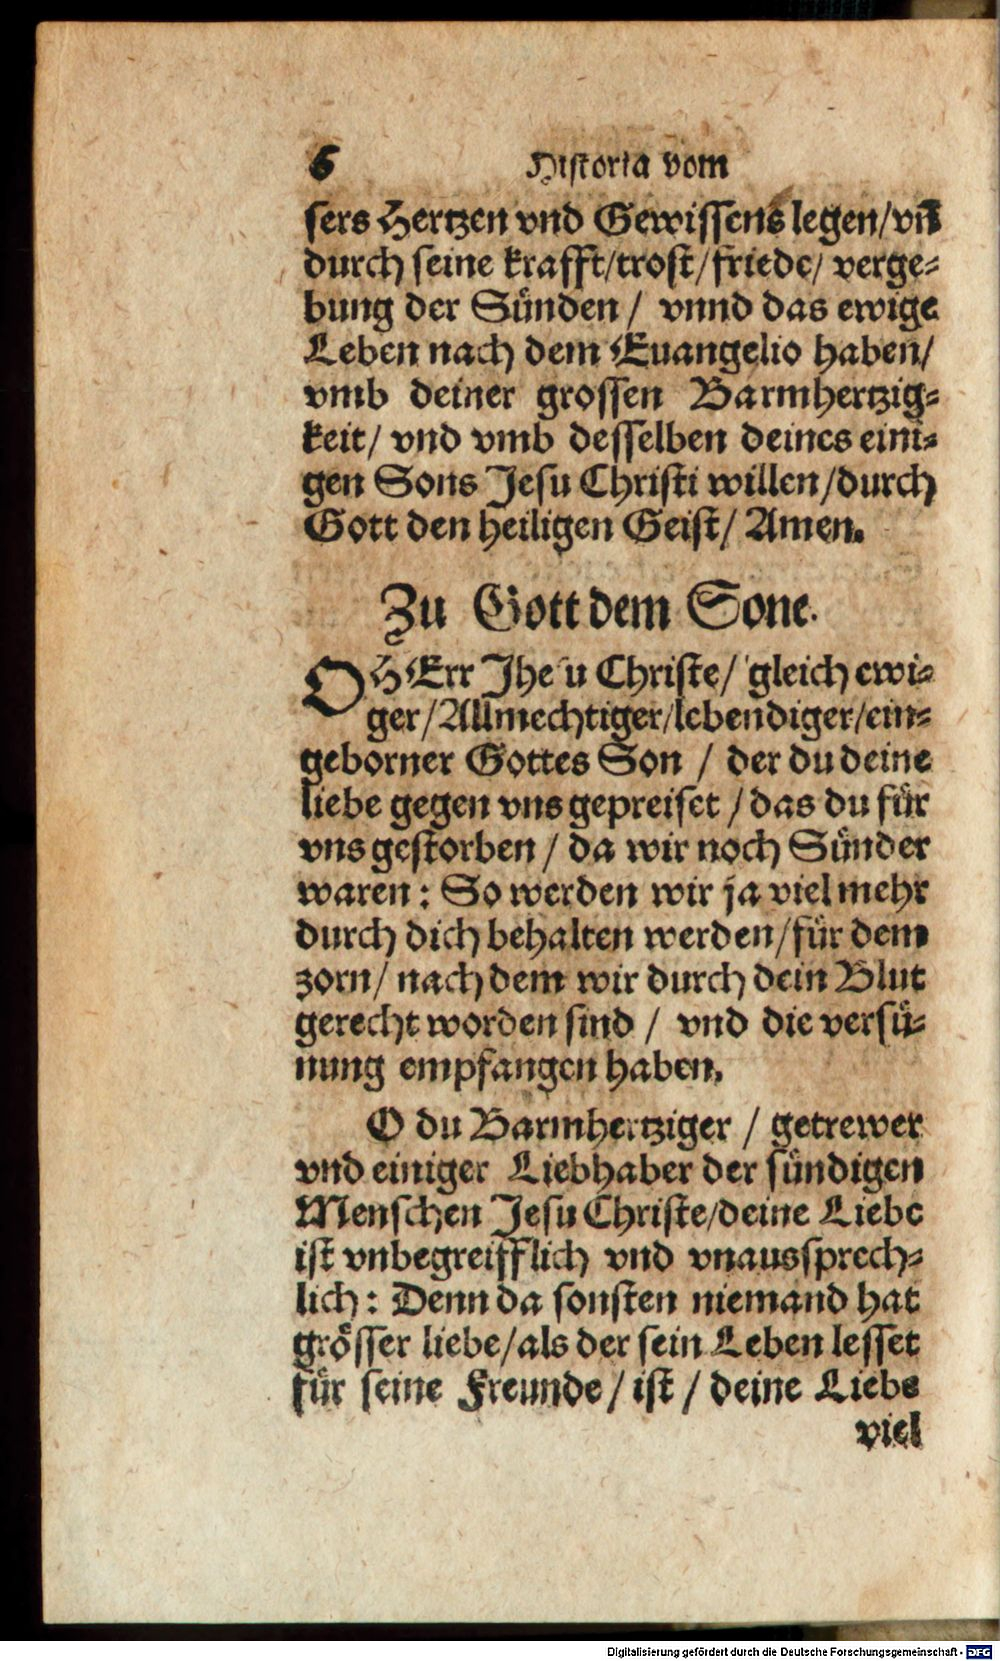 6 Historia vom
sers Hertzen vnd Gewissens legen/vn̄
durch seine krafft/trost/friede/ verge⸗
bung der Sünden / vnnd das ewige
Leben nach dem Euangelio haben/
vmb deiner grossen Barmhertzig⸗
keit/ vnd vmb desselben deines eini⸗
gen Sons Jesu Christi willen/durch
Gott den heiligen Geist/ Amen.
Zu Gott dem Sone.
O HErr Jhesu Christe/ gleich ewi⸗
ger/Allmechtiger/lebendiger/ein⸗
geborner Gottes Son / der du deine
liebe gegen vns gepreiset / das du für
vns gestorben / da wir noch Sünder
waren: So werden wir ja viel mehr
durch dich behalten werden/für dem
zorn/ nach dem wir durch dein Blut
gerecht worden sind / vnd die versü⸗
nung empfangen haben.
O du Barmhertziger / getrewer
vnd einiger Liebhaber der sündigen
Menschen Jesu Christe/deine Liebe
ist vnbegreifflich vnd vnaussprech⸗
lich: Denn da sonsten niemand hat
grösser liebe/als der sein Leben lesset
für seine Freunde / ist / deine Liebe
viel
Digitalisierung gefördert durch die Deutsche Forschungsgemeinschaft - DFG